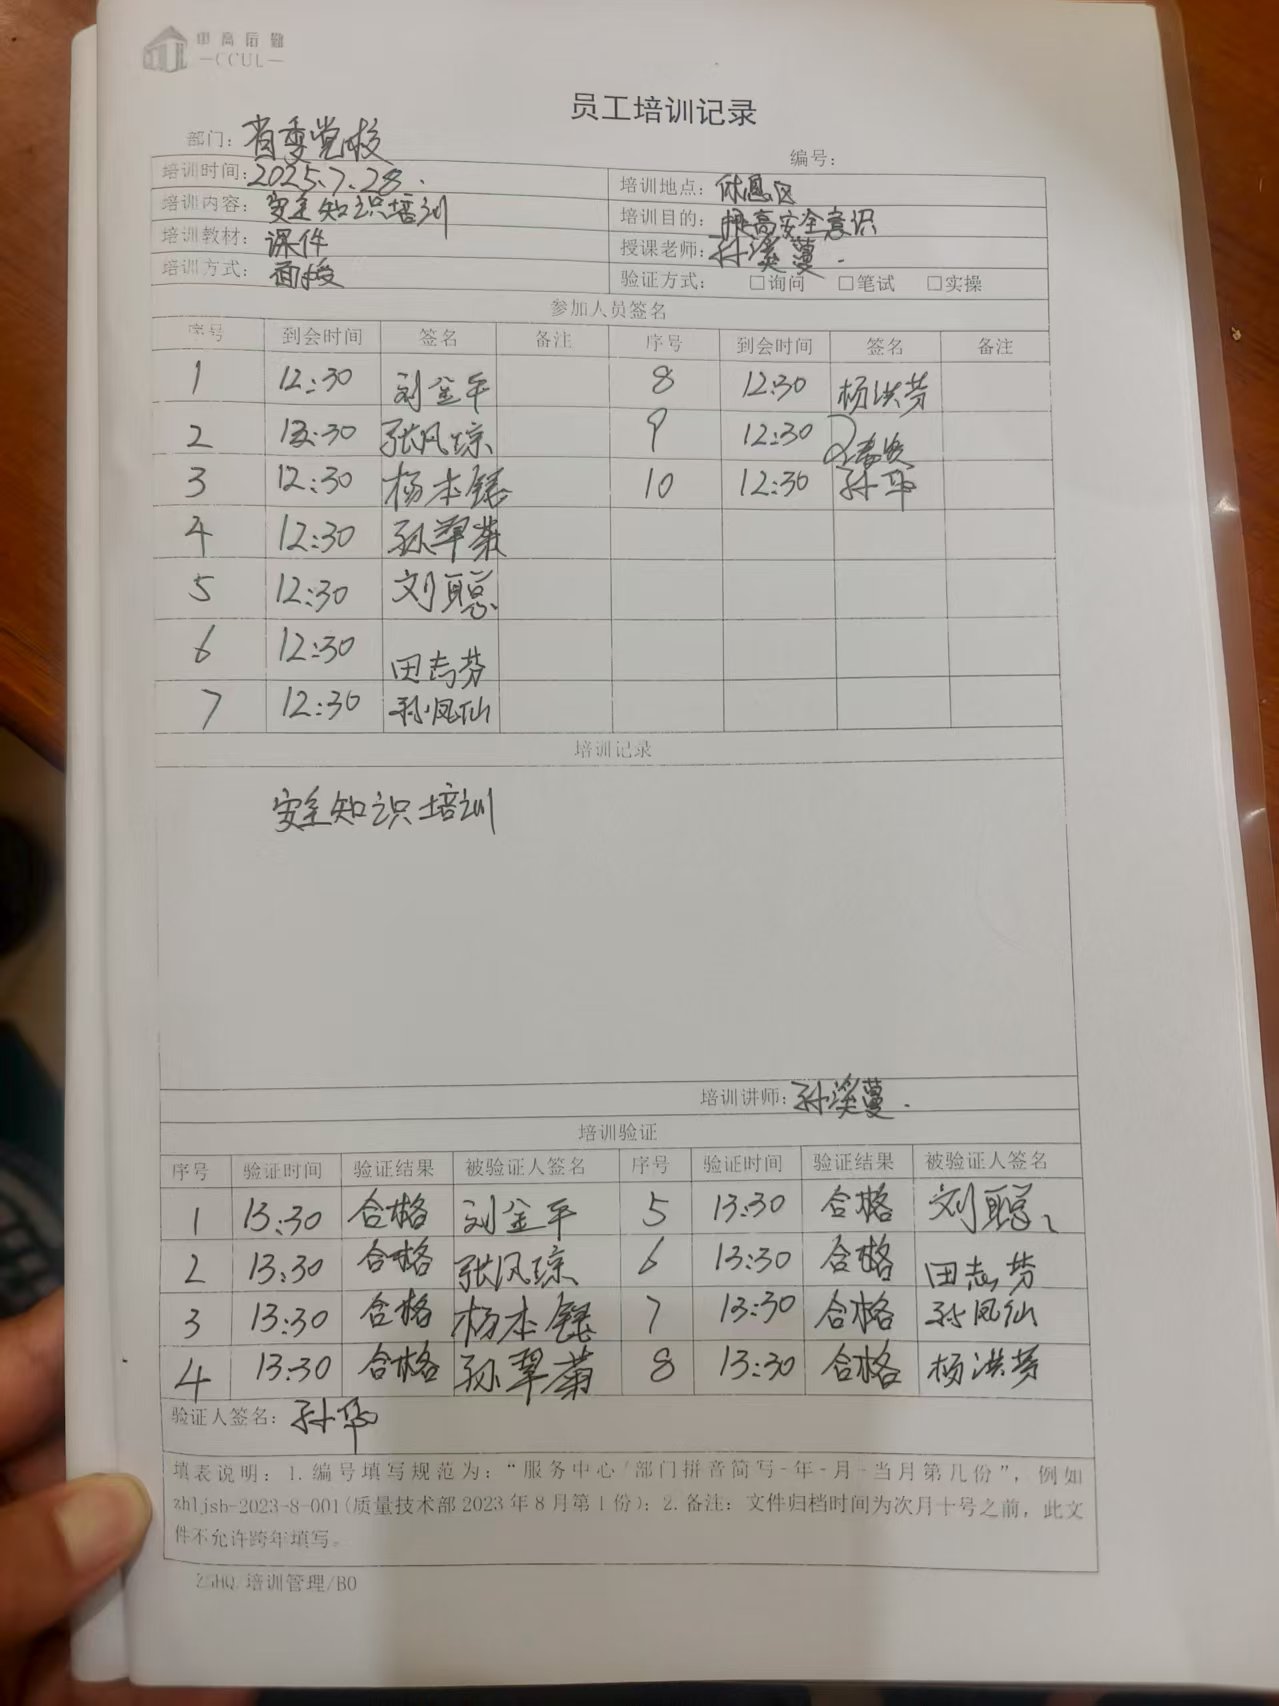 中高后勤
—CCUL—
员工培训记录
部门：省委党校
编号：
培训时间：2025.7.28. 培训地点：休息区
培训内容：安全知识培训 培训目的：提高安全意识
培训教材：课件 授课老师：孙溪蔓.
培训方式：面授 验证方式： □询问 □笔试 □实操
参加人员签名
序号 到会时间 签名 备注 序号 到会时间 签名 备注
1 12:30 刘金平 8 12:30 杨洪芳
2 12:30 张凤琼 9 12:30
3 12:30 杨本 10 12:30 孙华
4 12:30 孙翠菊
5 12:30 刘聪
6 12:30 田志芬
7 12:30 孙凤仙
培训记录
安全知识培训
培训讲师：孙溪蔓.
培训验证
序号 验证时间 验证结果 被验证人签名 序号 验证时间 验证结果 被验证人签名
1 13:30 合格 刘金平 5 13:30 合格 刘聪
2 13:30 合格 张凤琼 6 13:30 合格 田志芬
3 13:30 合格 杨本 7 13:30 合格 孙凤仙
4 13:30 合格 孙翠菊 8 13:30 合格 杨洪芳
验证人签名：孙华
填表说明：1.编号填写规范为：“服务中心/部门拼音简写-年-月-当月第几份”，例如
zhljsb-2023-8-001(质量技术部2023年8月第1份)；2.备注：文件归档时间为次月十号之前，此文
件不允许跨年填写。
ZGHQ/培训管理/B0